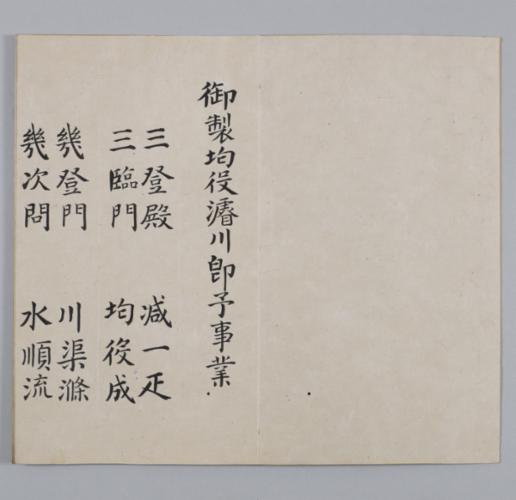 御製均役濬川卽予事業
三登殿 減一疋
三臨門 均役成
幾登門 川渠滌
幾次問 水順流